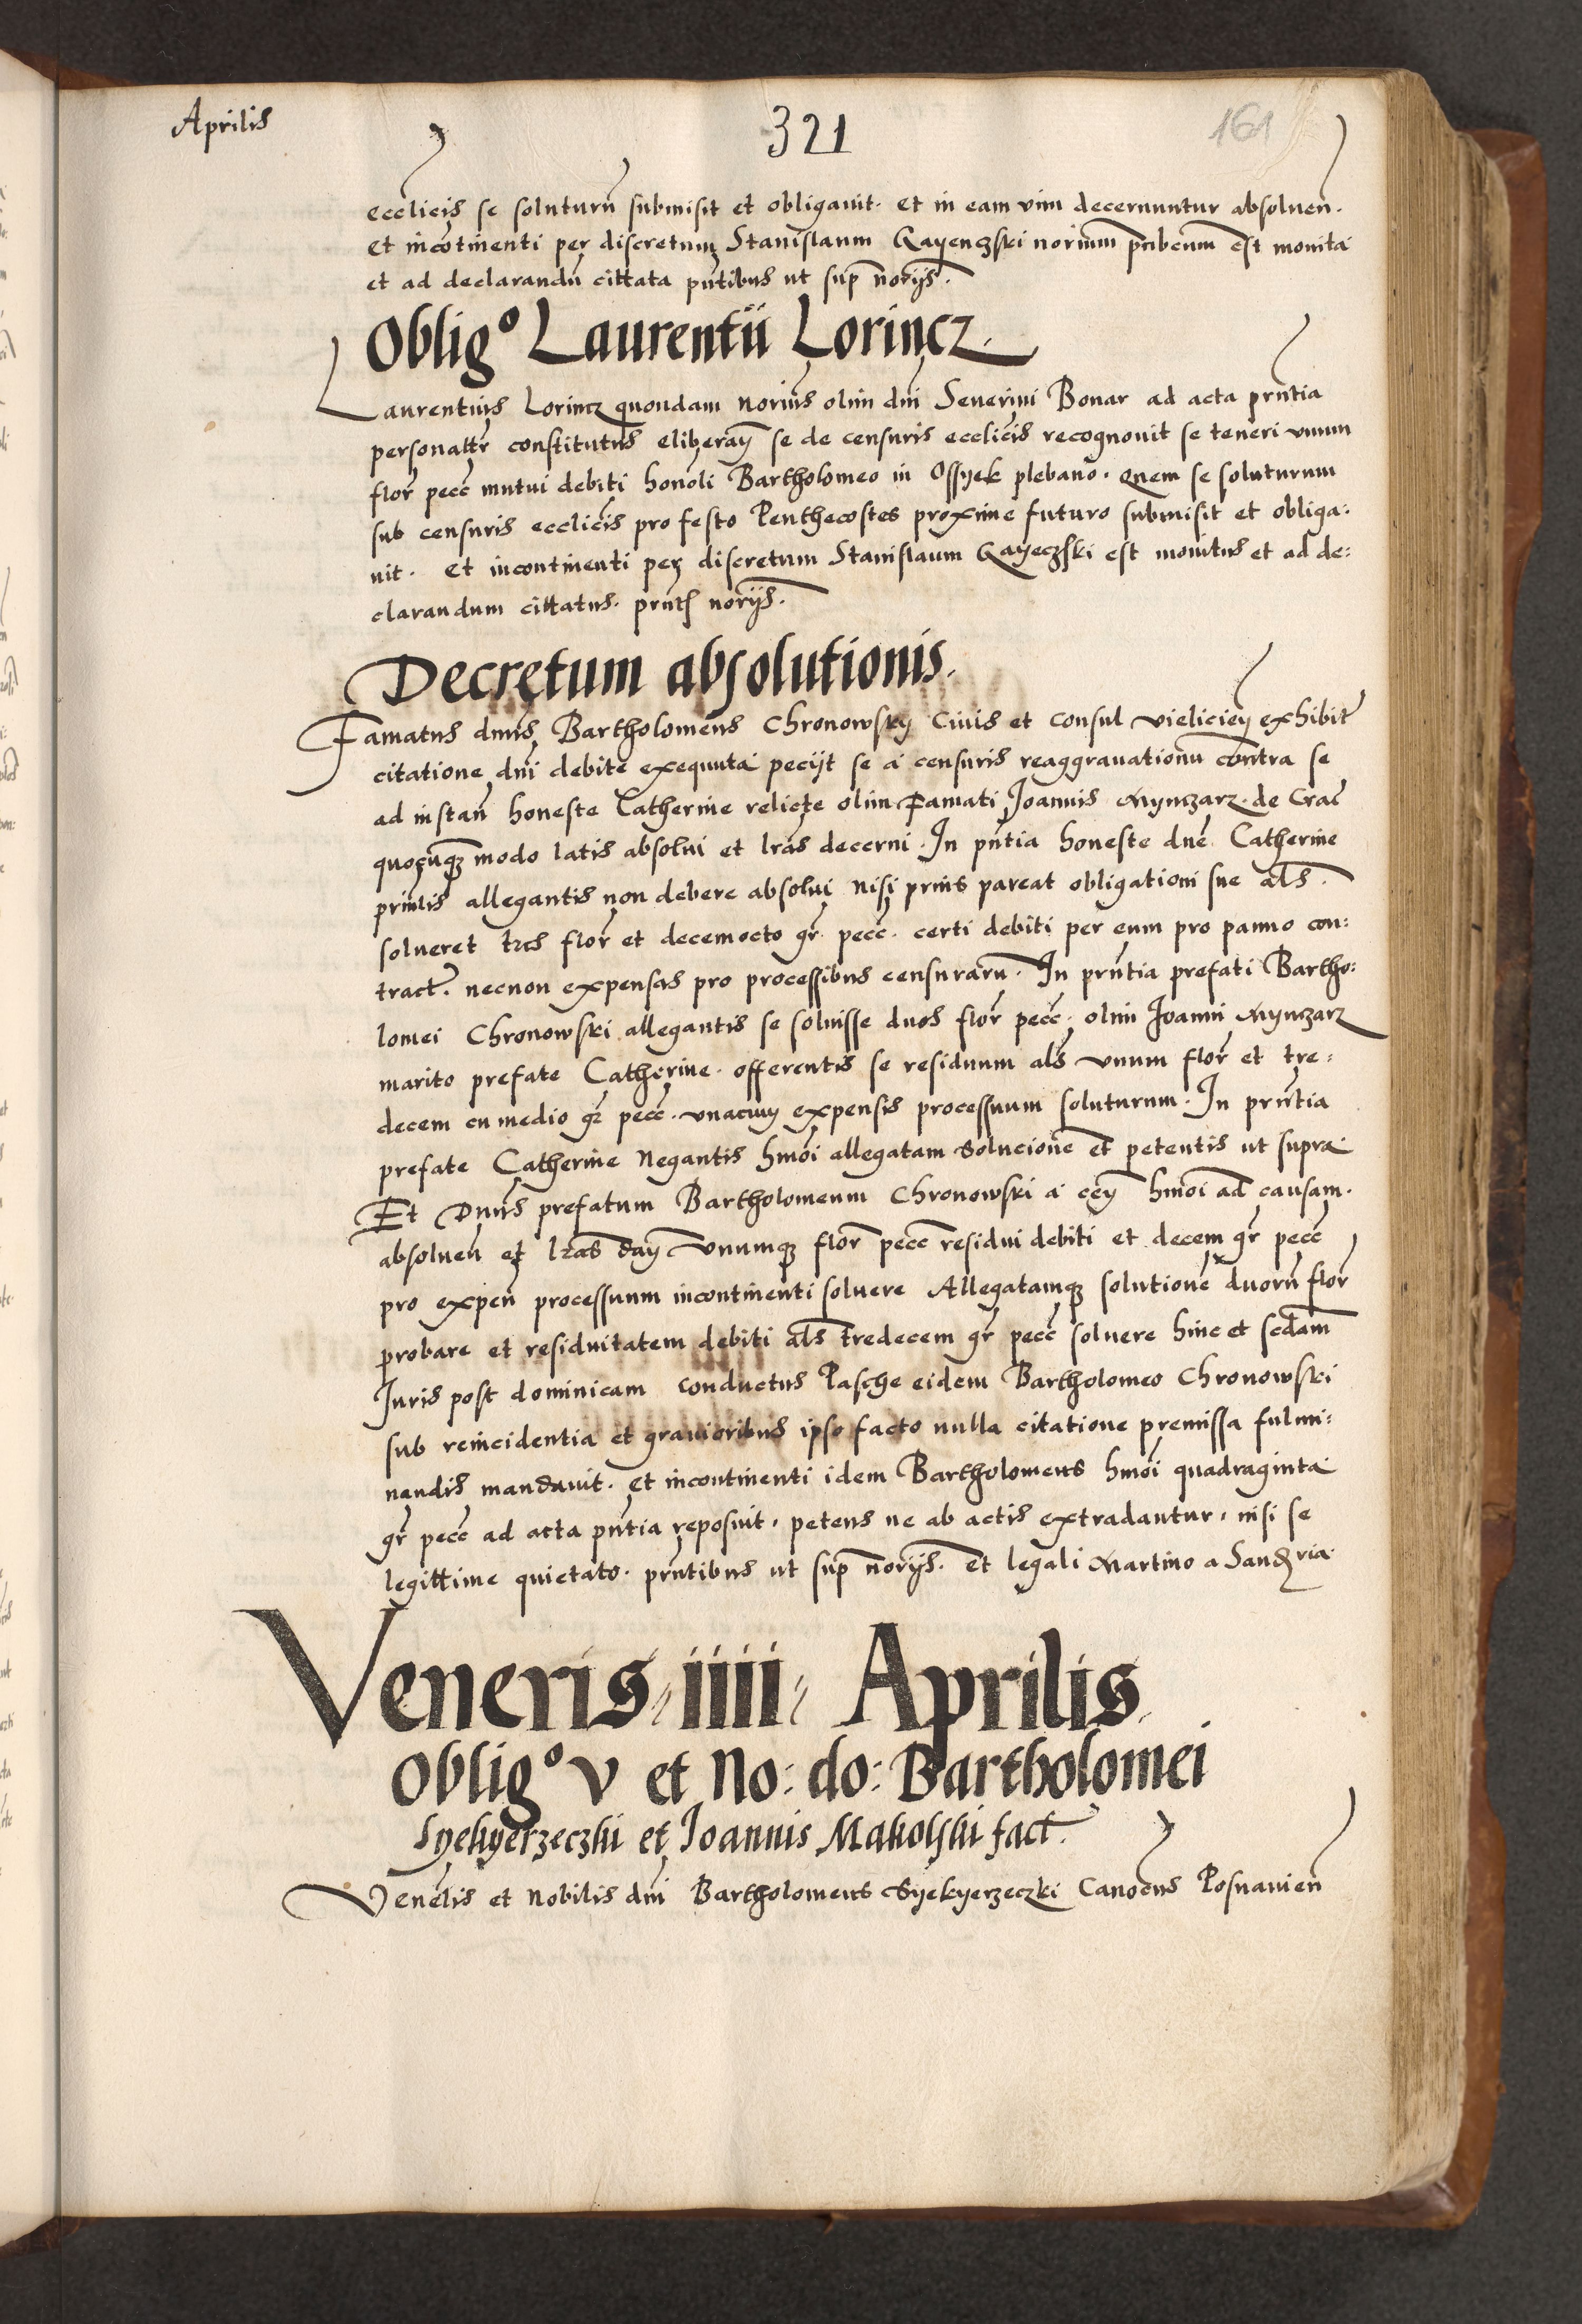 Aprilis
321
161
eccłicis se soluturū submisit et obligauit. et in eam vim decernuntur absoluen̄.
et incōtinenti per discretum Stanislaum Gayenczski norium pūbcum est monita
et ad declarandū cittata pn̄tibus ut sup̄ norijs.
Obligº Laurentii Lorincz.
Laurentius Lorincz quondam norius olim dni Seuerini Bonar ad acta prn̄tia
personalr̄ constitutus eliberan̄ se de censuris eccłicis recognouit se teneri vnum
flor̄ pecc̄ mutui debiti honoli Bartholomeo in Ossyek plebano. quem se soluturum
sub censuris eccłicis pro festo Penthecostes proxime futuro submisit et obliga:
uit. Et incontinenti per discretum Stanislaum Gayeczski est monitus et ad de:
clarandum cittatus. prn̄t norijs.
Decretum absolutionis.
Famatus dnus Bartholomeus Chronowsky Ciuis et consul vielicien̄ exhibit
citatione dni debite exequuta pecijt se a censuris reaggrauationū contra se
ad instan̄ honeste Catherine relicte olim Famati Joannis Mynczarz. de Crac̄
quocūqȝ modo latis absolui et lrās decerni. In pn̄tia honeste dne Catherine
prin̄lis allegantis non debere absolui nisi prius pareat obligationi sue als̄.
solueret tres flor̄ et decemocto gr̄ pecc̄. certi debiti per eum pro panno con:
tract. necnon expensas pro processibus censurarū. In prn̄tia prefati Bartho:
lomei Chronowski allegantis se soluisse duos flor̄ pecc̄. olim Joanni Mynczarz
marito prefate Catherine. offerentis se residuum als̄ vnum flor̄ et tre:
decem cu medio gr̄ pecc̄. vnacum expensis processuum soluturum. In prn̄tia
prefate Catherine Negantis hmōi allegatam Solucionē et petentis ut supra
Et Dnus prefatum Bartholomeum Chronowski a cen̄ hmoi ad causam.
absoluen̄ et lrās dan̄ Vnumqȝ flor̄ pecc̄ residui debiti et decem gr̄ pecc̄
pro expen̄ processuum incontinenti soluere Allegatamqȝ solutionē duorū flor̄
probare et residuitatem debiti als̄ tredecem gr̄ pecc̄ soluere hinc et scd̄am
Juris post dominicam conductus Pasche eidem Bartholomeo Chronowski
sub reincidentia et grauioribus ipso facto nulla citatione premissa fulmi:
nandis mandauit. Et incontinenti idem Bartholomeus hmōi quadraginta
gr̄ pecc̄ ad acta pn̄tia reposuit. petens ne ab actis extradantur. nisi se
legittime quietato. prn̄tibus ut sup̄ norijs. Et legali Martino a
Veneris iiii Aprilis
Obligº V et No: do: Bartholomei
Syekyerzeczki et Joannis Makolski fact.
Venēlis et Nobilis dni Bartholomeus Syekyerzeczki Canocus Posnanien̄